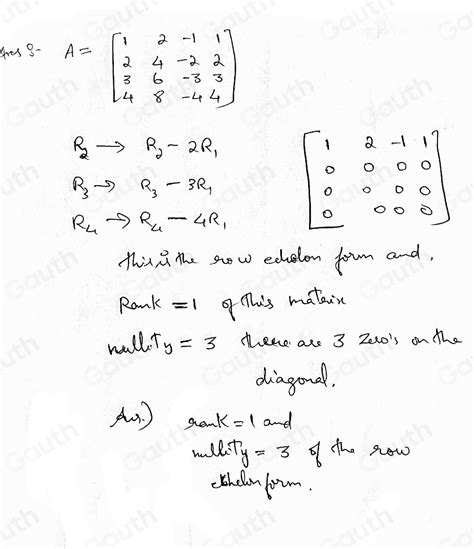 Ans :- A = [1 2 -1 1
2 4 -2 2
3 6 -3 3
4 8 -4 4]
R2 → R2 - 2R1
R3 → R3 - 3R1
R4 → R4 - 4R1
[1 2 -1 1
0 0 0 0
0 0 0 0
0 0 0 0]
this is the row echolon form and,
Rank = 1 of this matrix
nullity = 3 there are 3 zero's on the
diagonal.
Ans.) rank = 1 and
nullity = 3 of the row
form.
Gauth